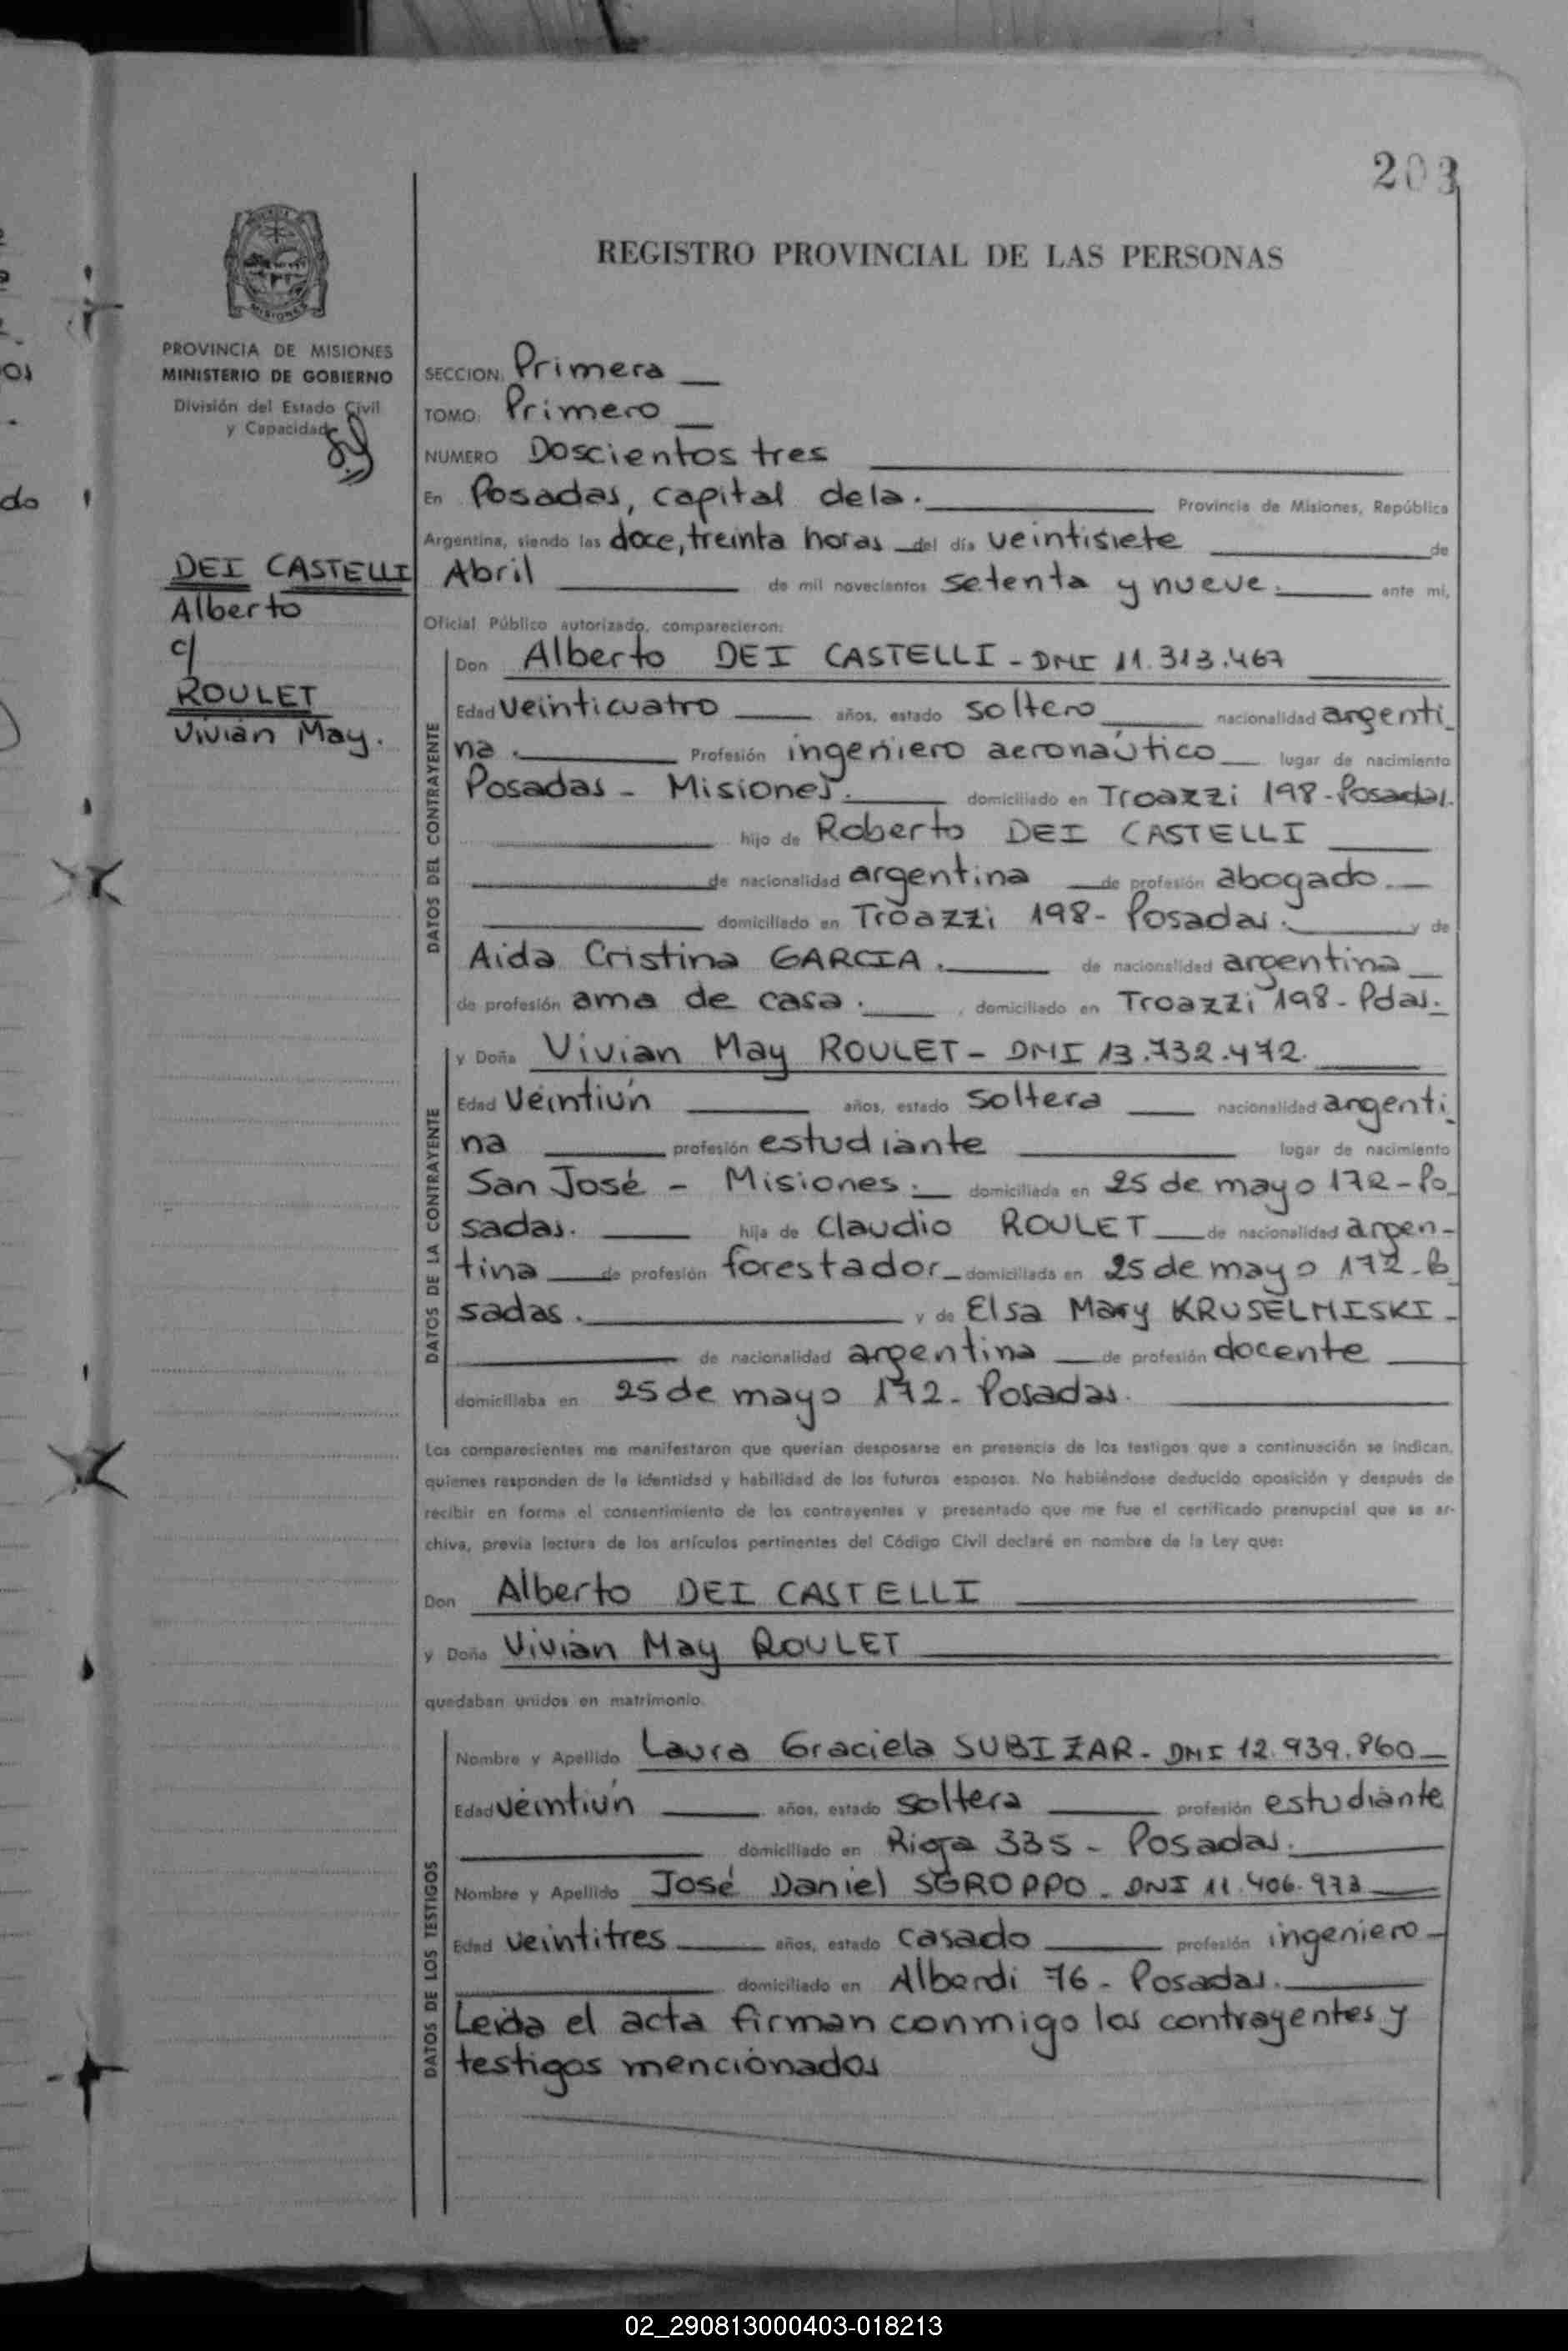 203
REGISTRO PROVINCIAL DE LAS PERSONAS
MISIONES
PROVINCIA DE MISIONES
MINISTERIO DE GOBIERNO
División del Estado Civil
y Capacidad
DEI CASTELLI
Alberto
c/
ROULET
Vivian May.
SECCION: Primera
TOMO: Primero
NUMERO Doscientos tres
En Posadas, capital dela. Provincia de Misiones, República
Argentina, siendo las doce, treinta horas del día veintisiete de
Abril de mil novecientos setenta y nueve. ante mí,
Oficial Público autorizado, comparecieron:
DATOS DEL CONTRAYENTE
Don Alberto DEI CASTELLI - DNI 11.313.467
Edad veinticuatro años, estado soltero nacionalidad argenti
na. Profesión ingeniero aeronaútico lugar de nacimiento
Posadas - Misiones. domiciliado en Troazzi 198 - Posadas.
hijo de Roberto DEI CASTELLI
de nacionalidad argentina de profesión abogado.
domiciliado en Troazzi 198 - Posadas. y de
Aida Cristina GARCIA. de nacionalidad argentina
de profesión ama de casa. , domiciliado en Troazzi 198 - Pdas.
DATOS DE LA CONTRAYENTE
y Doña Vivian May ROULET - DNI 13.732.472.
Edad veintiún años, estado soltera nacionalidad argenti
na profesión estudiante lugar de nacimiento
San José - Misiones. domiciliada en 25 de mayo 172 - Po
sadas. hija de Claudio ROULET de nacionalidad argen-
tina de profesión forestador domiciliada en 25 de mayo 172 - Po
sadas. y de Elsa Mary KRUSELMISKI -
de nacionalidad argentina de profesión docente
domiciliaba en 25 de mayo 172 - Posadas.
Los comparecientes me manifestaron que querían desposarse en presencia de los testigos que a continuación se indican,
quienes responden de la identidad y habilidad de los futuros esposos. No habiéndose deducido oposición y después de
recibir en forma el consentimiento de los contrayentes y presentado que me fue el certificado prenupcial que se ar-
chiva, previa lectura de los artículos pertinentes del Código Civil declaré en nombre de la Ley que:
Don Alberto DEI CASTELLI
y Doña Vivian May ROULET
quedaban unidos en matrimonio.
DATOS DE LOS TESTIGOS
Nombre y Apellido Laura Graciela SUBIZAR - DNI 12.939.860
Edad veintiún años, estado soltera profesión estudiante
domiciliado en Rioja 335 - Posadas.
Nombre y Apellido José Daniel SGROPPO - DNI 11.406.973
Edad veintitres años, estado casado profesión ingeniero
domiciliado en Alberdi 76 - Posadas.
Leida el acta firman conmigo los contrayentes y
testigos mencionados
02_290813000403-018213